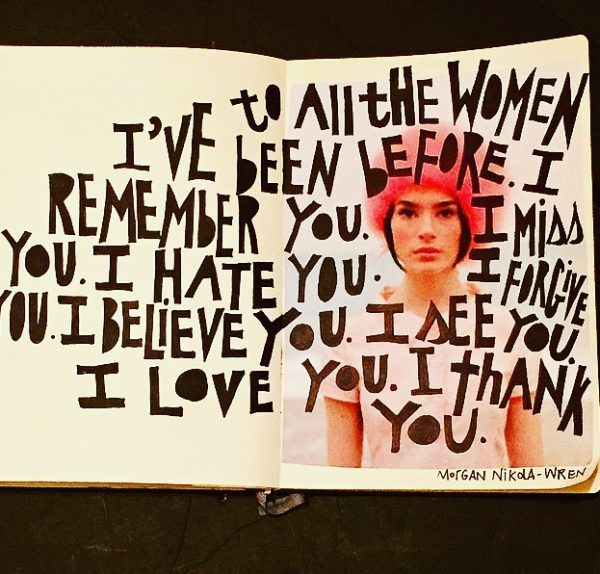 to All tHE WOMEN
I'VE bEEN bEFORE. I
REMEMbER YOU. I Miss
YOU. I HATE YOU. I FORGiVE
YOU. I BELiEVE YOU. I sEE YOU.
I LOVE YOU. I thANK
YOU.
MORGAN NiKOLA-WREN